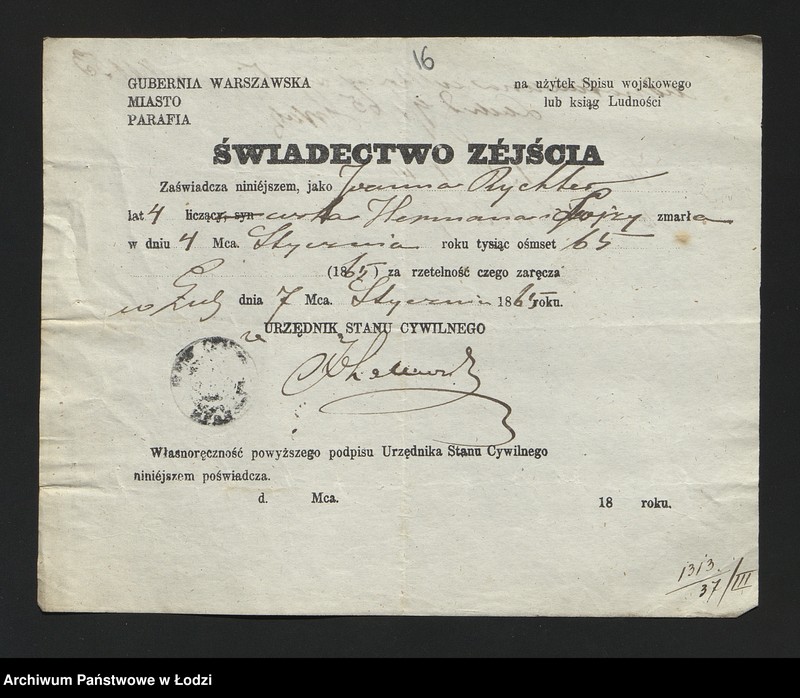 16
GUBERNIA WARSZAWSKA
MIASTO
PARAFIA
na użytek Spisu wojskowego
lub ksiąg Ludności
ŚWIADECTWO ZÉJŚCIA
Zaświadcza niniéjszem, jako Joanna Rychter
lat 4 liczący, syn córka Hermana i zmarła
w dniu 4 Mca. Stycznia roku tysiąc ośmset 65
(1865) za rzetelność czego zaręcza
w dnia 7 Mca. Stycznia 1865 roku.
URZĘDNIK STANU CYWILNEGO
Własnoręczność powyższego podpisu Urzędnika Stanu Cywilnego
niniéjszem poświadcza.
d. Mca. 18 roku.
1313.
37/III
Archiwum Państwowe w Łodzi